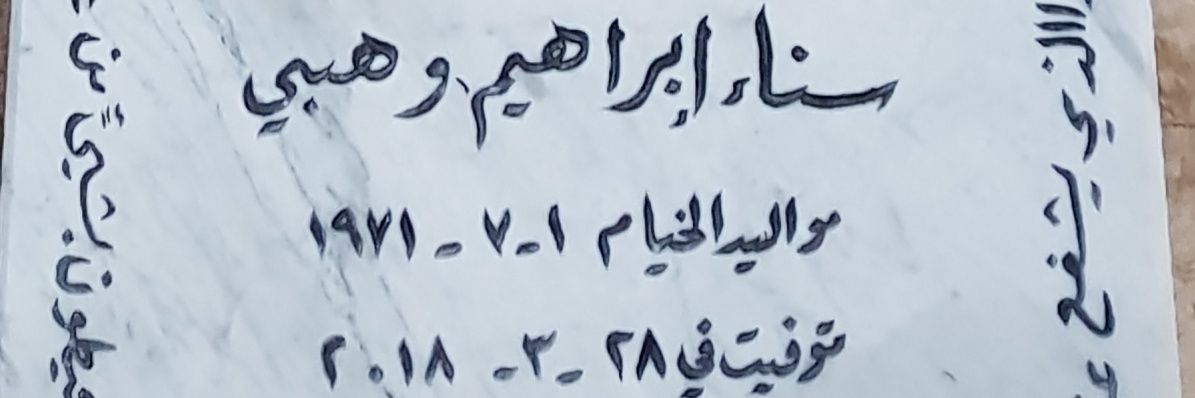 سناء إبراهيم وهبي
مواليد الخيام ١-٧-١٩٧١
توفيت في ٢٨-٣-٢٠١٨
الذي يشفع